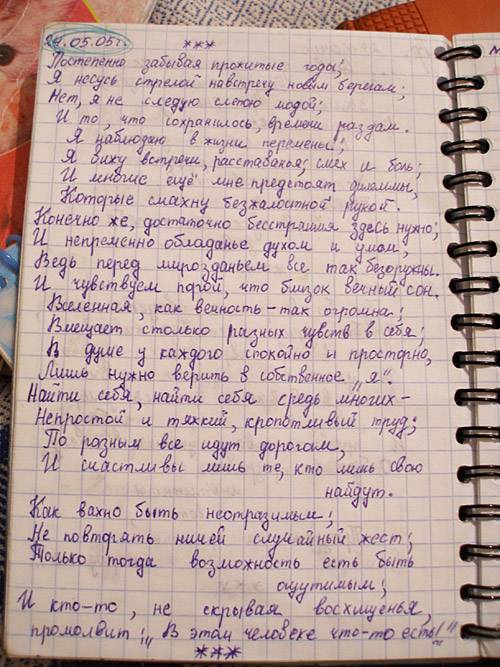 24.05.05г.
***
Постепенно забывая прожитые годы;
Я несусь стрелой навстречу новым берегам;
Нет, я не следую слепою модой;
И то, что сохранилось, времени раздам.
Я наблюдаю в жизни перемены;
Я вижу встречи, расставанья, смех и боль;
И многие ещё мне предстоят дилеммы,
Которые смахну безжалостной рукой.
Конечно же, достаточно бесстрашия здесь нужно;
И непременно обладанье духом и умом,
Ведь перед мирозданьем все так безоружны.
И чувствуем порой, что близок вечный сон.
Вселенная, как вечность-так огромна;
Вмещает столько разных чувств в себя;
В душе у каждого спокойно и просторно,
Лишь нужно верить в собственное „я".
Найти себя, найти себя средь многих-
Непростой и тяжкий, кропотливый труд;
По разным все идут дорогам,
И счастливы лишь те, кто лишь свою
найдут.
Как важно быть неотразимым;
Не повторять ничей случайный жест;
Только тогда возможность есть быть
ощутимым;
И кто-то, не скрывая восхищенья,
промолвит: „В этом человеке что-то есть!"
***